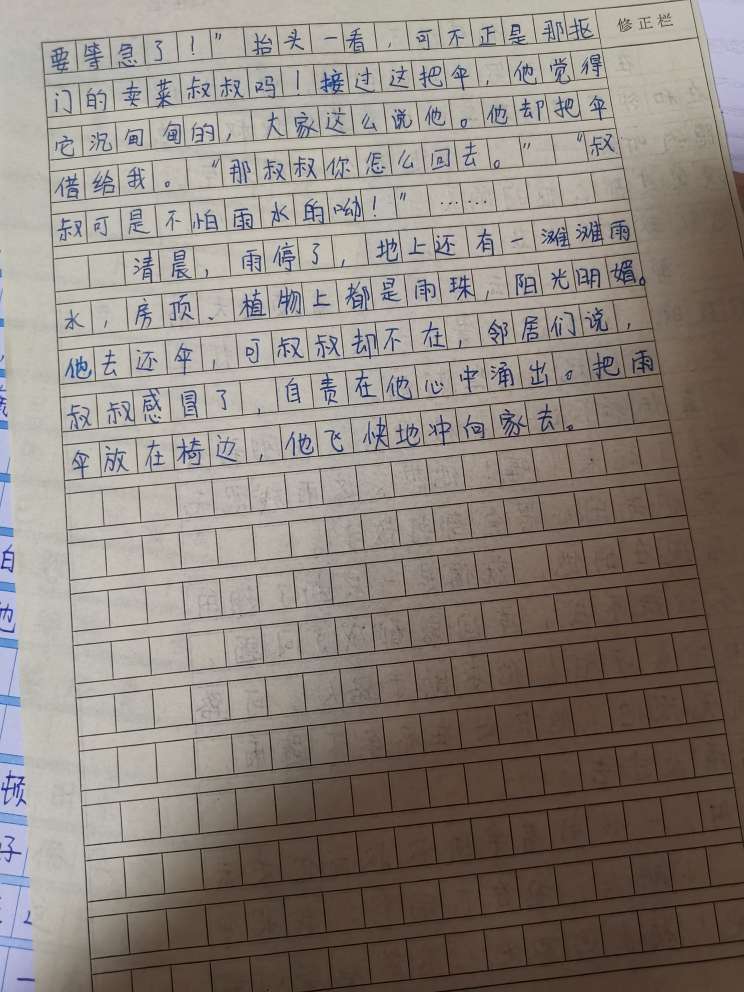 修正栏
要等急了！”抬头一看，可不正是那抠
门的卖菜叔叔吗！接过这把伞，他觉得
它沉甸甸的，大家这么说他。他却把伞
借给我。“那叔叔你怎么回去。”“叔
叔可是不怕雨水的呦！”……
清晨，雨停了，地上还有一滩滩雨
水，房顶、植物上都是雨珠，阳光明媚。
他去还伞，可叔叔却不在，邻居们说，
叔叔感冒了，自责在他心中涌出。把雨
伞放在椅边，他飞快地冲向家去。
白
他
顿
子